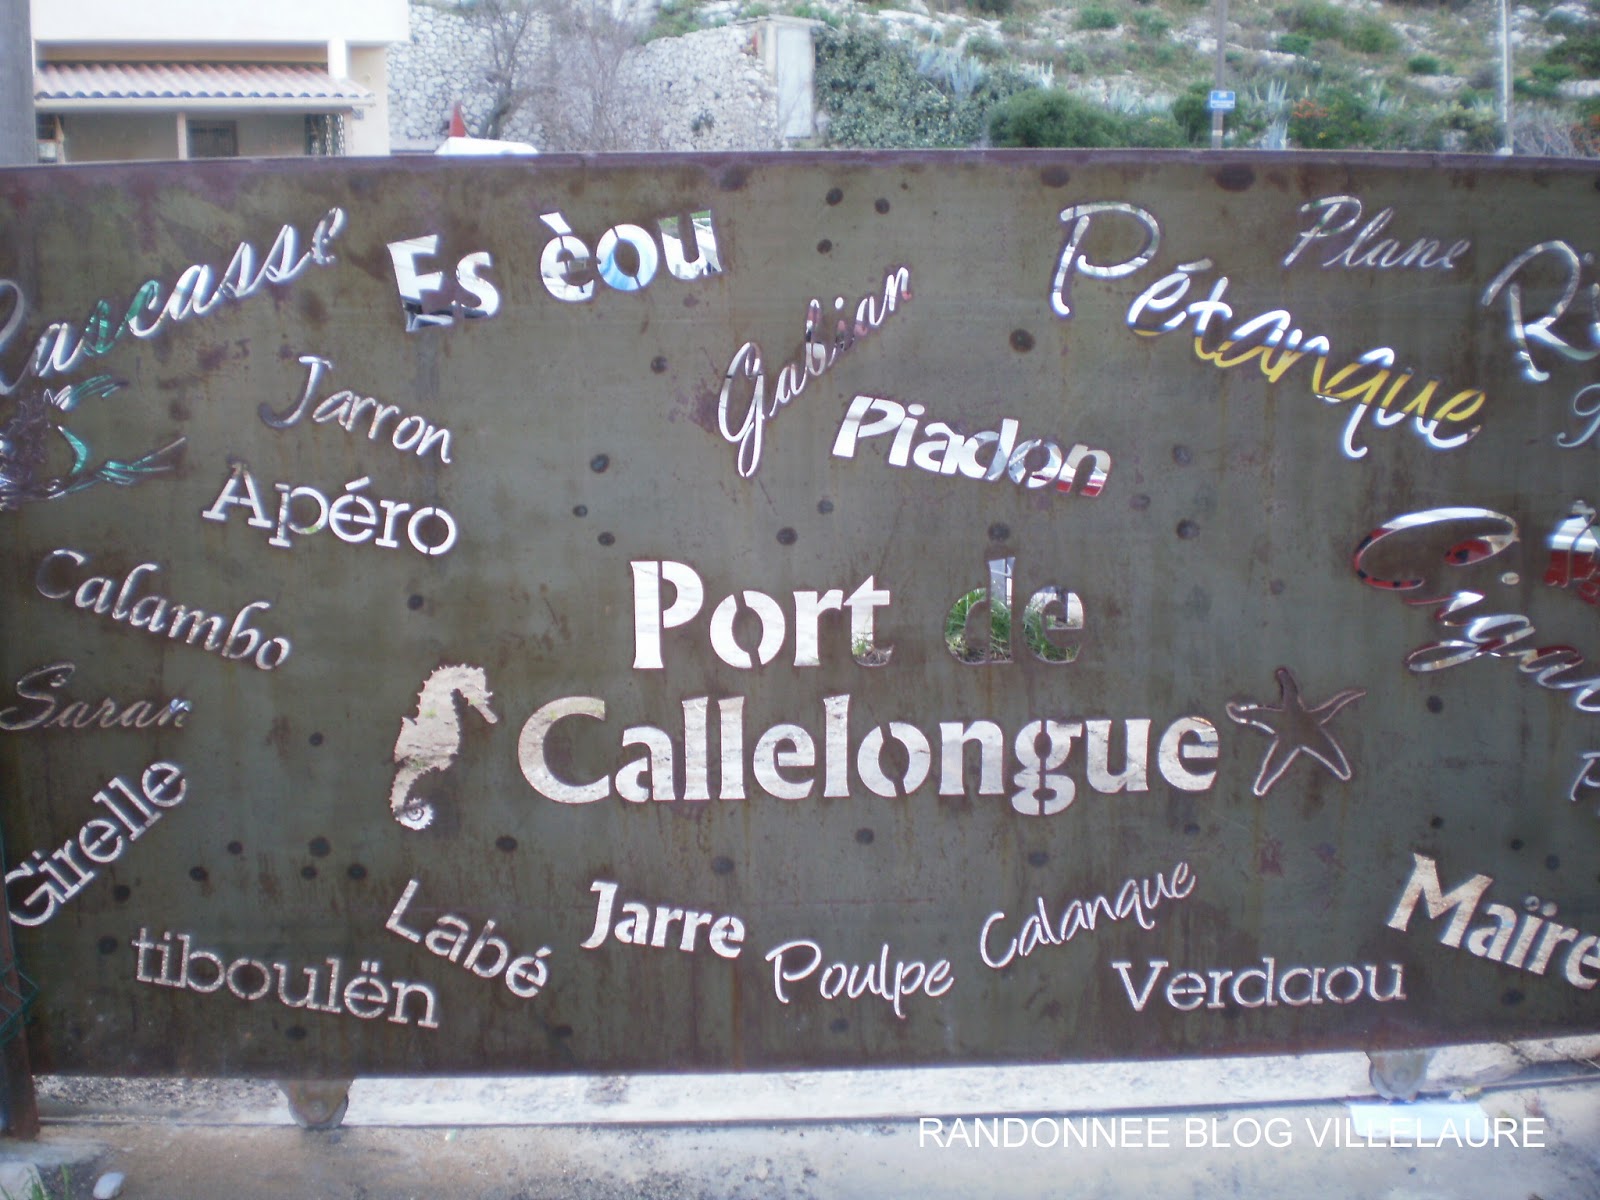 Rascasse
Es èou
Gabian
Pétanque
Plane
Jarron
Piadon
Apéro
Calambo
Port de
Callelongue
Saran
Girelle
tiboulën
Labé
Jarre
Poulpe
Calanque
Verdaou
Maïre
RANDONNEE BLOG VILLELAURE